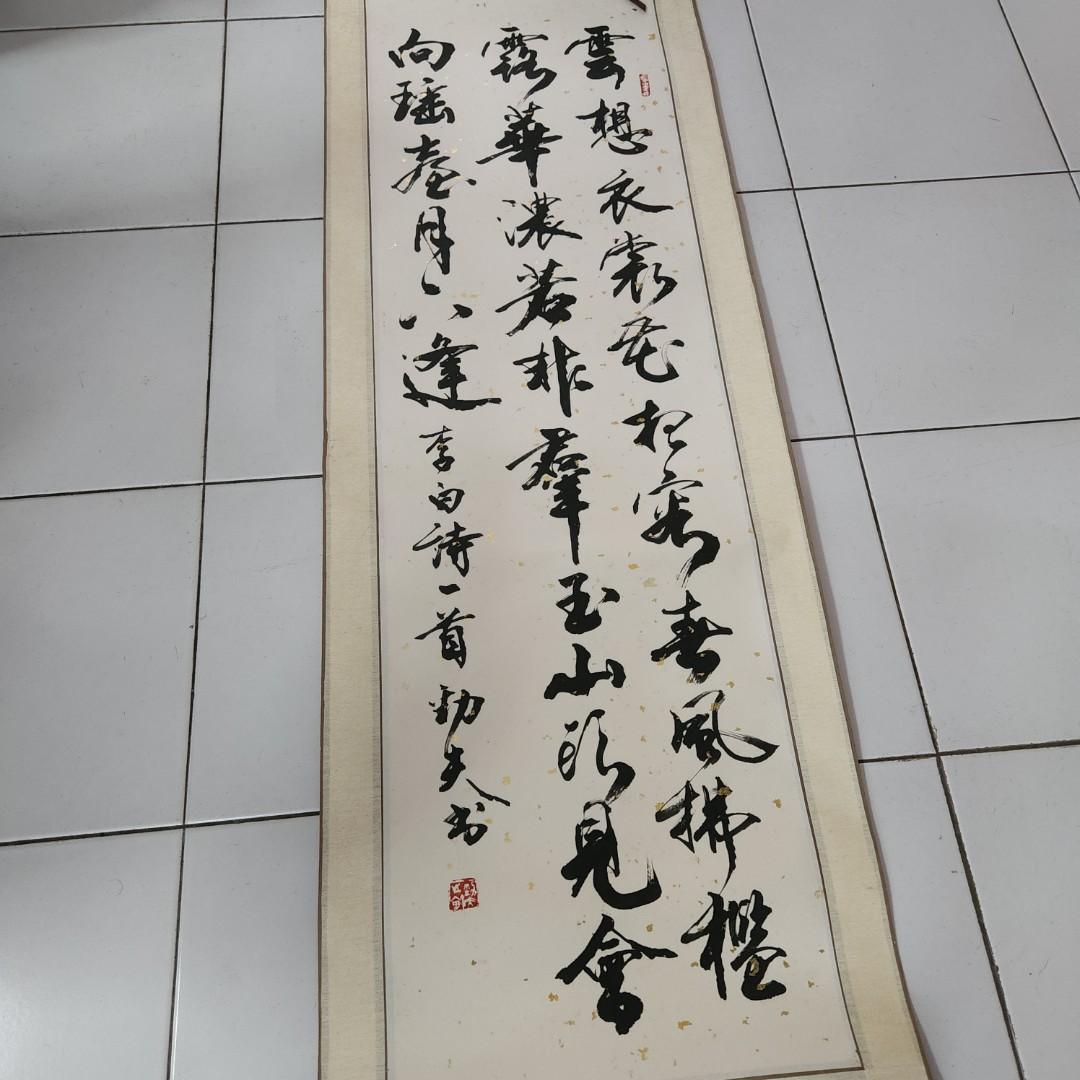 雲想衣裳花想容春風拂檻
露華濃若非羣玉山頭見會
向瑶臺月下逢 李白詩一首 勁夫書